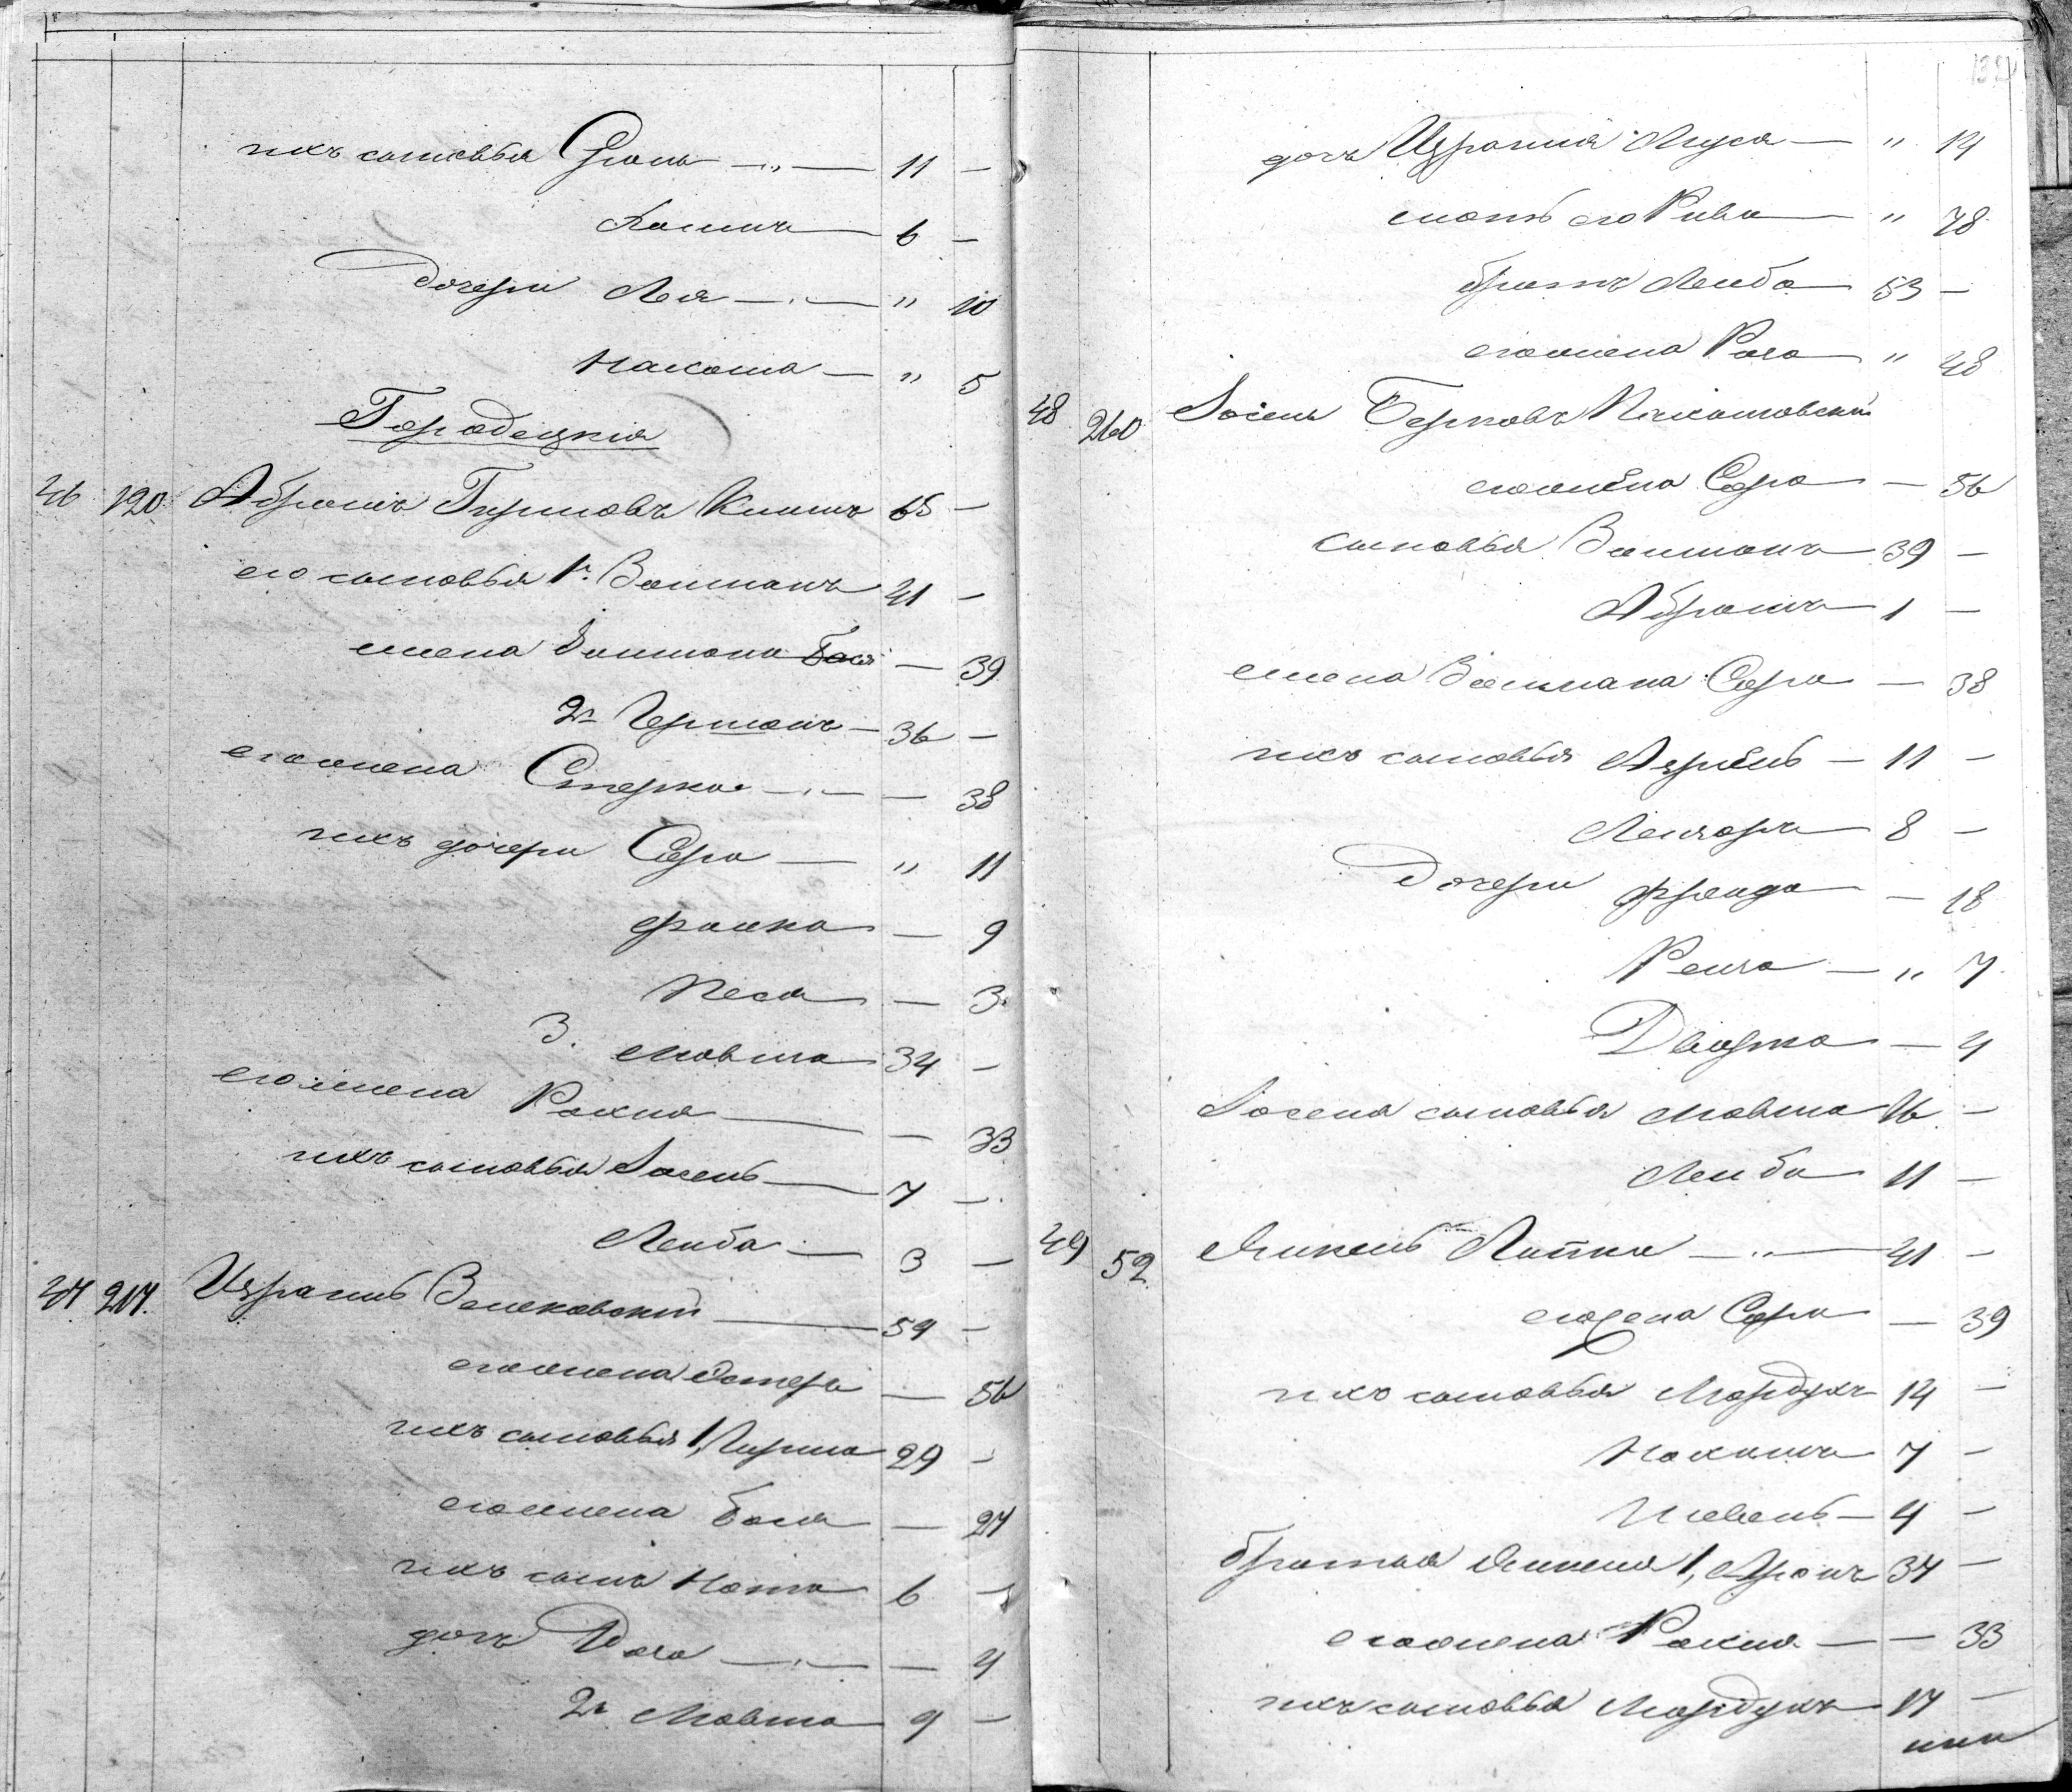 ихъ сыновья — „ — 11 —
6 —
Дочери Лея — „ — „ 10
Нахома — „ 5
Городецкія
46 120 Абрамъ Гиршовъ 65 —
его сыновья 1. Залманъ 41 —
жена Залмана Бася — 39
2. Гершонъ — 36 —
его жена Стерка — „ — — 38
ихъ дочери Сора — „ 11
Фрумка — 9
Песя — 3
3. Мовша 34 —
его жена Рохля — — 33
ихъ сыновья Іосель — 7 —
Лейба — 3 —
47 217. Израиль — 59 —
его жена Эстеръ — 56
ихъ сыновья 1, Гирша 29 —
его жена Бася — 27
ихъ сынъ Нота 6 —
дочь — „ — — 4
2. Мовша 9 —
дочь Израиля Муся — „ 14
мать его Рива — „ 78
братъ Лейба — 53 —
его жена Рога — „ 48
48 260 Іосель Берковъ
его жена Сора — 56
сыновья Залманъ 39 —
Абрамъ 1 —
жена Залмана Сора — 38
ихъ сыновья Азріель — 11 —
Лейзеръ 8 —
Дочери Фрейда — 18
— „ 7
Двоша — 4
Іоселя сыновья Мовша 16 —
Лейба 11 —
49 52 Янкель — „ — 41 —
его жена Сора — 39
ихъ сыновья Мордухъ 14 —
Нохимъ 7 —
4 —
братья Янкеля 1, Аронъ 37 —
его жена Рохля — — 33
ихъ сыновья Мордухъ 17 —